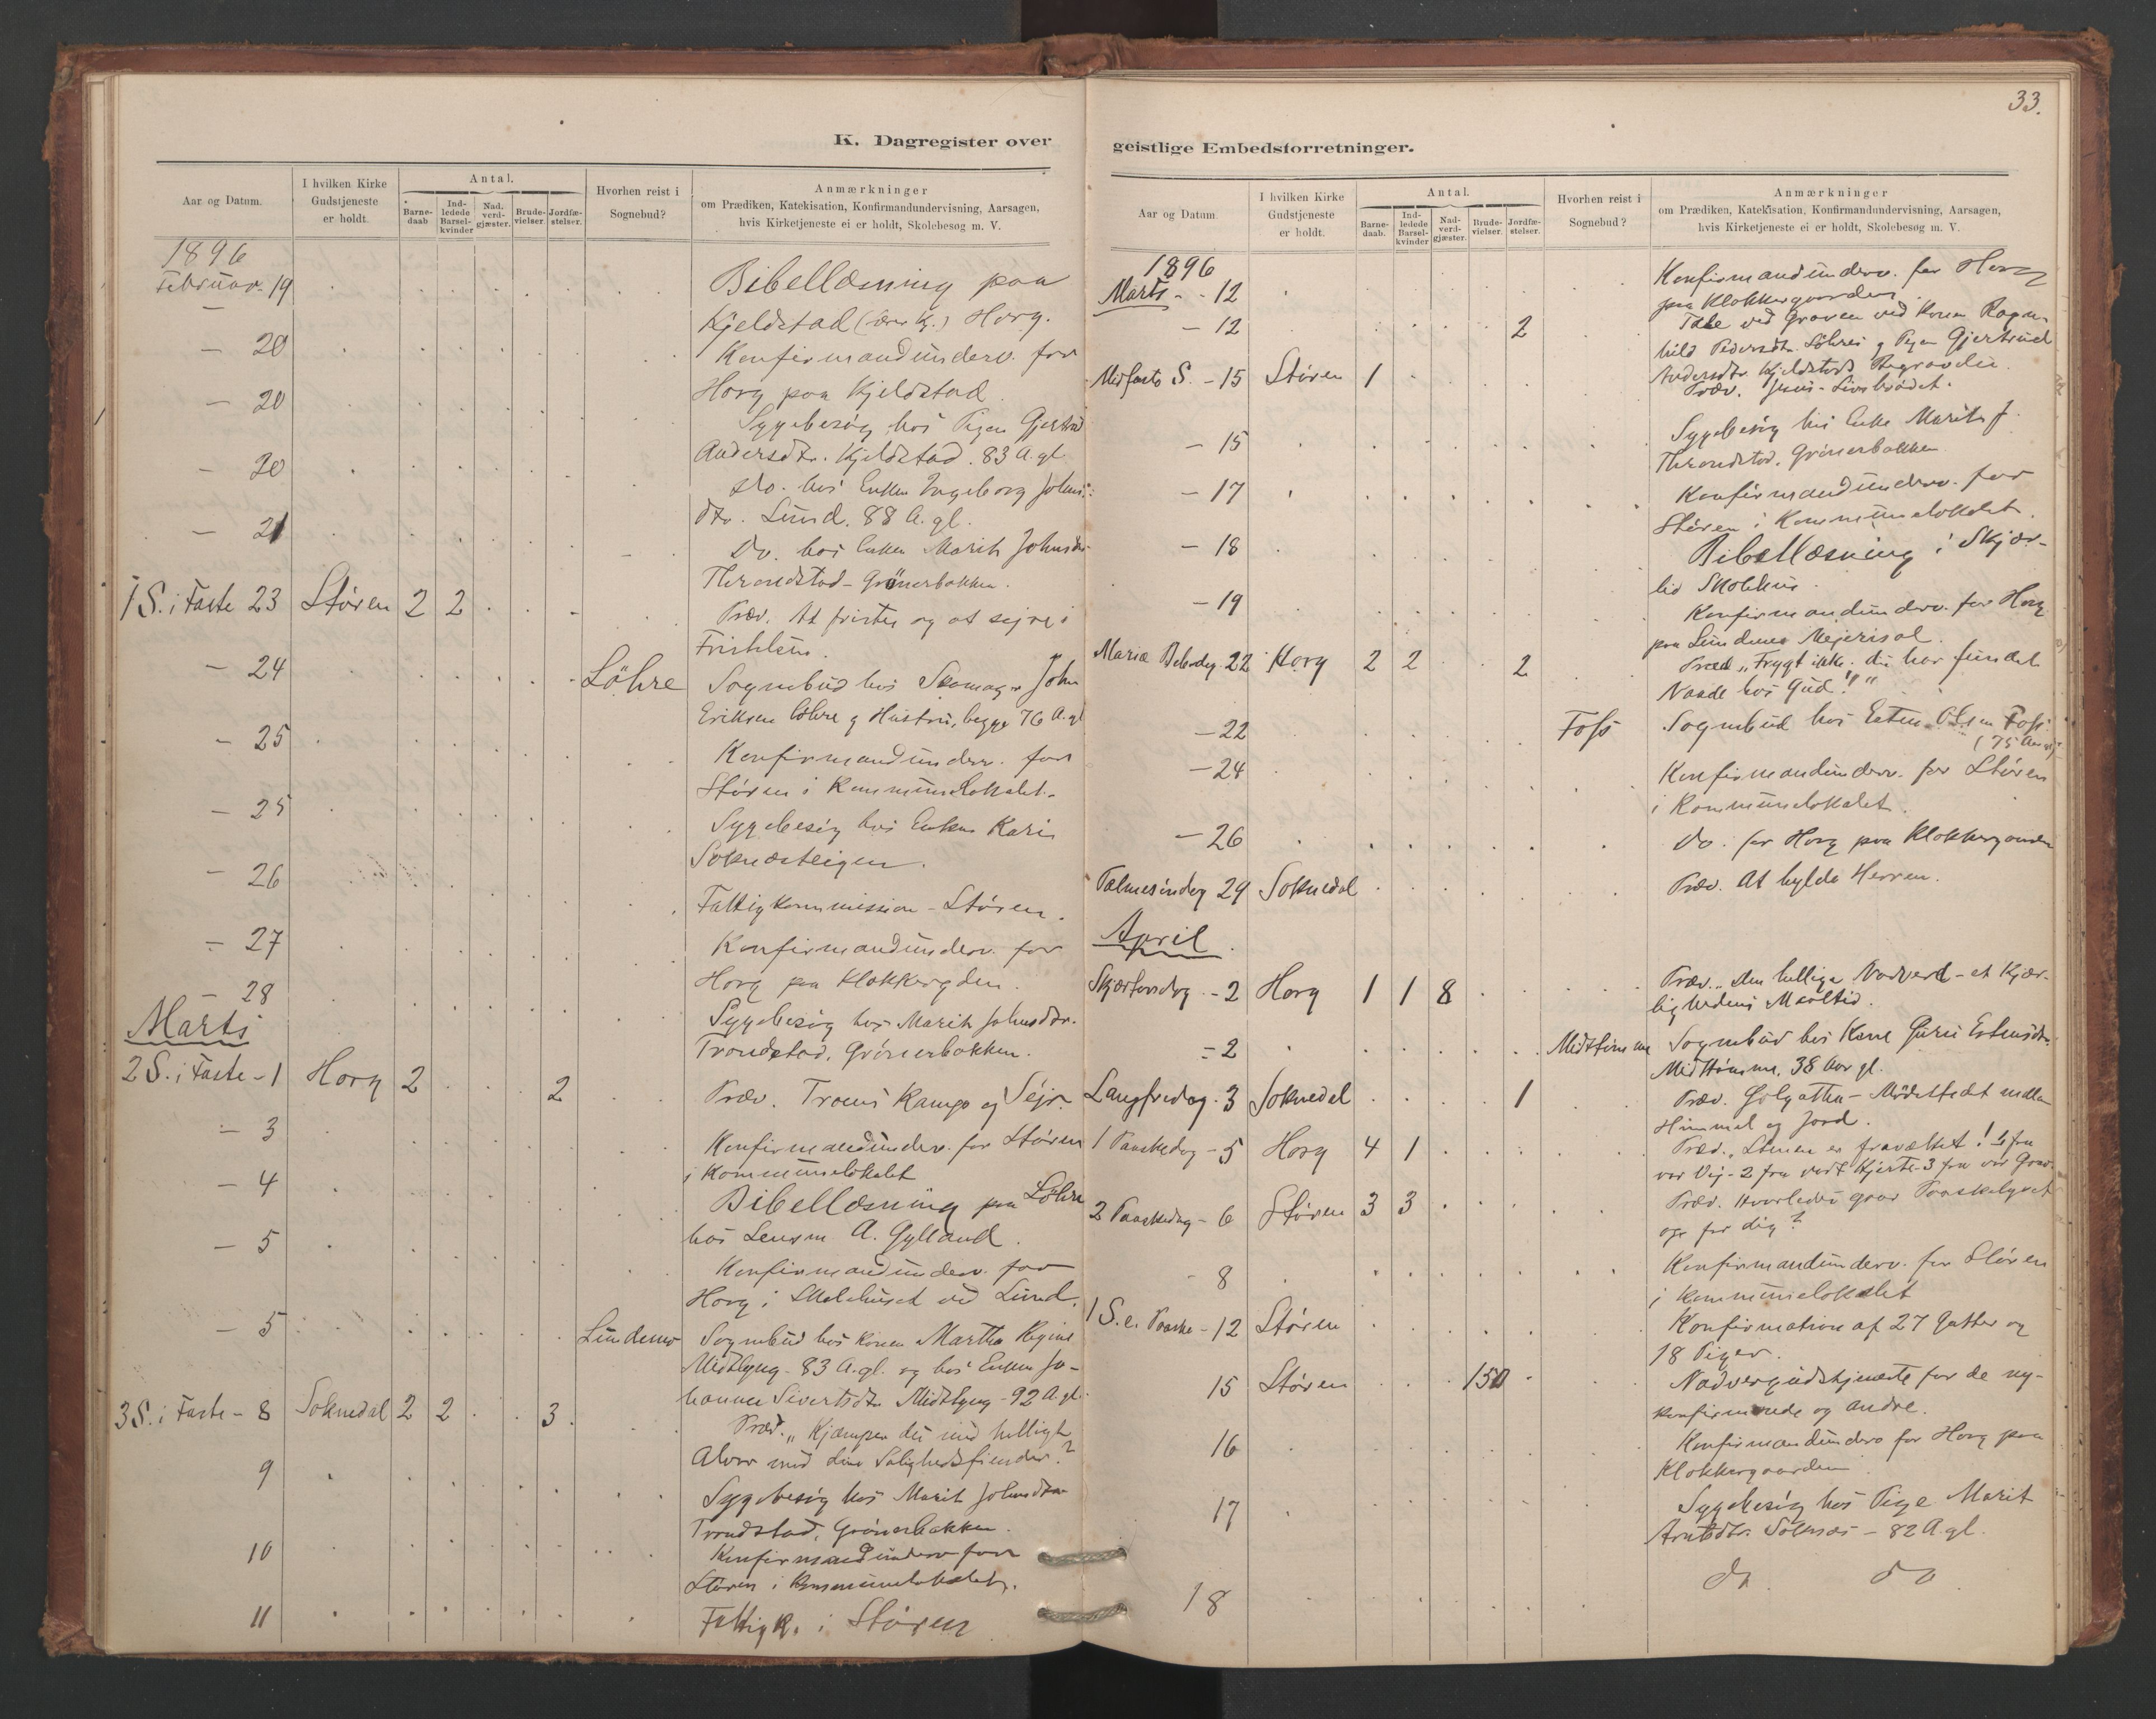 33.
K. Dagregister over
Aar og Datum.
I hvilken Kirke Gudstjeneste er holdt.
Antal.
Barne-daab
Ind-ledede Barsel-kvinder
Nad. verd-gjæster.
Brude-vielser.
Jordfæ-stelser.
Hvorhen reist i Sognebud?
Anmærkninger
om Prædiken, Katekisation, Konfirmandundervisning, Aarsagen,
hvis Kirketjeneste ei er holdt, Skolebesøg m. V.
1896
Februar. 19 Bibellæsning paa
Kjeldstad (øvre Kj.) Horg.
— 20 Konfirmandunderv. for
Horg paa Kjeldstad.
— 20 Sygebesøg hos Pigen Gjertrud
Andersdtr. Kjeldstad. 83 A. gl.
— 20 do. hos Enken Ingeborg Johns-
dtr. Lund. 88 A. gl.
— 21 Do. hos Enken Marit Johnsdtr
Throndstad - Grönerbakken.
1 S. i Faste 23 Støren 2 2 Præd. At fristes og at sejre i
Fristelsen.
— 24 Löhre Sognebud hos Skomager John
Eriksen Löhre og Hustru, begge 76 A. gl
— 25 Konfirmandunderv. for
Støren i Kommunelokalet.
— 25 Sygebesøg hos Enken Kari
Soknæsteigen.
— 26 Fattigkommission - Støren.
— 27 Konfirmandunderv. for
Horg paa Klokkergden.
— 28 Sygebesøg hos Marit Johnsdtr.
Trondstad, Grönerbakken.
Marts
2 S. i Faste - 1 Horg 2 2 Præd. Troens Kamp og Sejr.
— 3 Konfirmandunderv. for Støren
i Kommunelokalet
— 4 Bibellæsning paa Löhre
hos Lensm A. Gylland.
— 5 Konfirmandunderv. for
Horg i Skolehuset ved Lund.
— 5 Lundemo Sognebud hos Konen Martha Regine
Midtlyng - 83 A. gl. og hos Enken Jo-
hanna Sivertsdtr Midtlyng - 92 A. gl.
3 S. i Faste - 8 Soknedal 2 2 3 Præd. „Kjæmper du med helligt
Alvor mod dine Salighedsfiender?
9 Sygebesøg hos Marit Johnsdtr
Trondstad, Grönerbakken.
10 Konfirmandunderv for
Støren i Kommunelokalet.
11 Fattigk. i Støren
geistlige Embedsforretninger.
Aar og Datum.
I hvilken Kirke Gudstjeneste er holdt.
Antal.
Barne-daab.
Ind-ledede Barsel-kvinder
Nad-verd-gjæster.
Brude-vielser.
Jordfæ-stelser.
Hvorhen reist i Sognebud?
Anmærkninger
om Prædiken, Katekisation, Konfirmandundervisning, Aarsagen,
hvis Kirketjeneste ei er holdt, Skolebesøg m. V.
1896
Marts - - 12 Konfirmandunderv. for Horg
paa Klokkergaarden
— 12 2 Tale ved Graven ved Konen Ragn-
hild Pedersdtr. Löhres og Pigen Gjertrud
Andersdtr Kjeldstads Begravelse.
Midfaste S. - 15 Støren 1 Præd. Jesus - Livsbrødet.
— 15 Sygebesøg hos Enke Marit J.
Throndstad. Grönerbakken
— 17 Konfirmandunderv. for
Støren i Kommunelokalet.
— 18 Bibellæsning i Skjær-
lid Skolehus.
— 19 Konfirmandunderv. for Horg
paa Lundemo Mejerisal.
Mariæ Bebudg. 22 Horg 2 2 2 Præd „Frygt ikke: du har fundet
Naade hos Gud!"
— 22 Foss Sognebud hos Esten Olsen Foss.
(75 Aar gl)
— 24 Konfirmandunderv. for Støren
i Kommunelokalet.
— 26 Do. for Horg paa Klokkergaarden
Palmesøndag 29 Soknedal Præd. At hylde Herren.
April
Skjærtorsdag - 2 Horg 1 1 8 Præd. „Den hellige Nadverd - et Kjær-
lighedens Maaltid.
— 2 Midttömme Sognebud hos Kone Guru Estensdtr.
Midttömme, 38 Aar gl.
Langfredag - 3 Soknedal 1 Præd. Golgatha - Mödestedet mellem
Himmel og Jord.
1 Paaskedag - 5 Horg 4 1 Præd. „Stenen er fravæltet! 1 fra
vor Vej - 2 fra vort Hjerte - 3 fra vor Grav.
2 Paaskedag - 6 Støren 3 3 Præd. Hvorledes gaar Paaskelyset
op for dig?
8 Konfirmandunderv. for Støren
i Kommunelokalet
1 S. e. Paaske - 12 Støren Konfirmation af 27 Gutter og
18 Piger.
15 Støren 150 Nadvergudstjeneste for de ny-
konfirmerede og andre.
16 Konfirmandunderv for Horg paa
Klokkergaarden
17 Sygebesøg hos Pige Marit
Arntsdtr. Soknæs - 82 A. gl.
18 do do